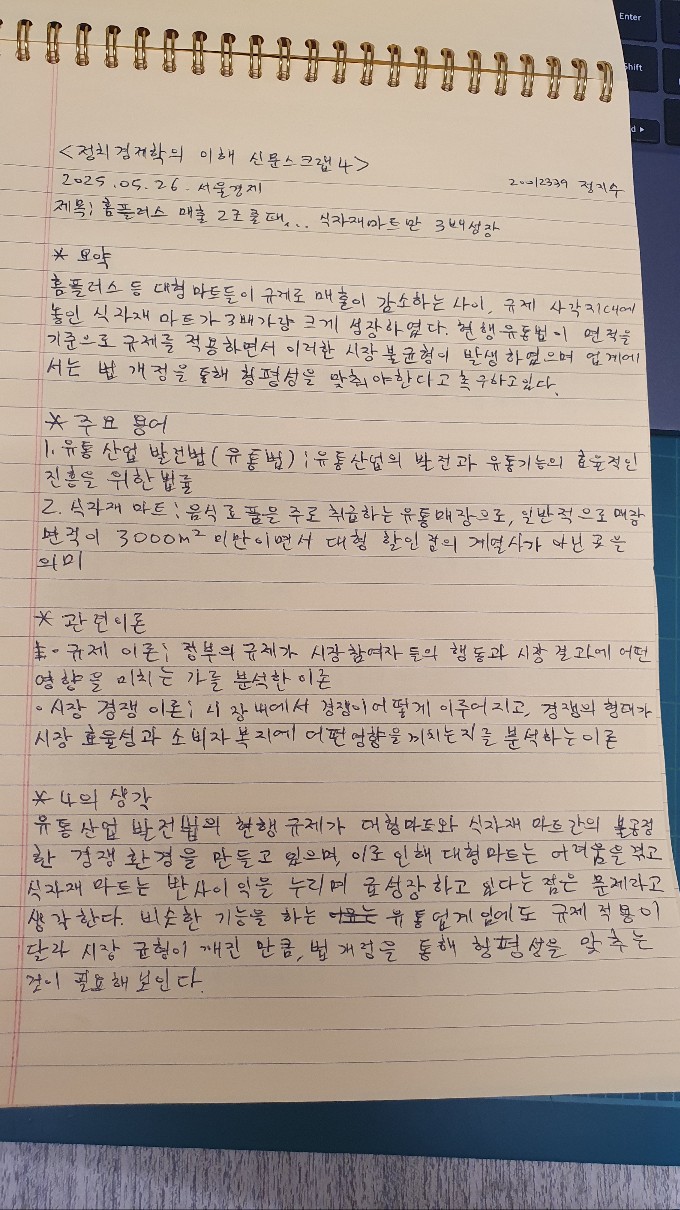 Enter
Shift
<정치경제학의 이해 신문스크랩4>
2025.05.26. 서울경제
20012339 정지수
제목; 홈플러스 매출 2조 줄때... 식자재마트만 3배성장
* 요약
홈플러스 등 대형마트들이 규제로 매출이 감소하는 사이, 규제 사각지대에
놓인 식자재 마트가 3배가량 크게 성장하였다. 현행유통법이 면적을
기준으로 규제를 적용하면서 이러한 시장 불균형이 발생하였으며 업계에
서는 법 개정을 통해 형평성을 맞춰야한다고 촉구하고있다.
* 주요 용어
1. 유통산업 발전법(유통법) ; 유통산업의 발전과 유통기능의 효율적인
진흥을 위한 법률
2. 식자재 마트 ; 음식료품을 주로 취급하는 유통매장으로, 일반적으로 매장
면적이 3000m² 미만이면서 대형 할인점의 계열사가 아닌 곳을
의미
* 관련이론
• 규제 이론; 정부의 규제가 시장참여자 들의 행동과 시장 결과에 어떤
영향을 미치는 가를 분석한 이론
• 시장 경쟁 이론; 시장내에서 경쟁이 어떻게 이루어지고, 경쟁의 형태가
시장 효율성과 소비자 복지에 어떤영향을 끼치는지를 분석하는 이론
* 나의 생각
유통산업 발전법의 현행 규제가 대형마트와 식자재 마트간의 불공정
한 경쟁 환경을 만들고 있으며, 이로 인해 대형마트는 어려움을 겪고
식자재 마트는 반사이익을 누리며 급성장하고 있다는 점은 문제라고
생각한다. 비슷한 기능을 하는 유통업계임에도 규제 적용이
달라 시장 균형이 깨진 만큼, 법 개정을 통해 형평성을 맞추는
것이 필요해보인다.